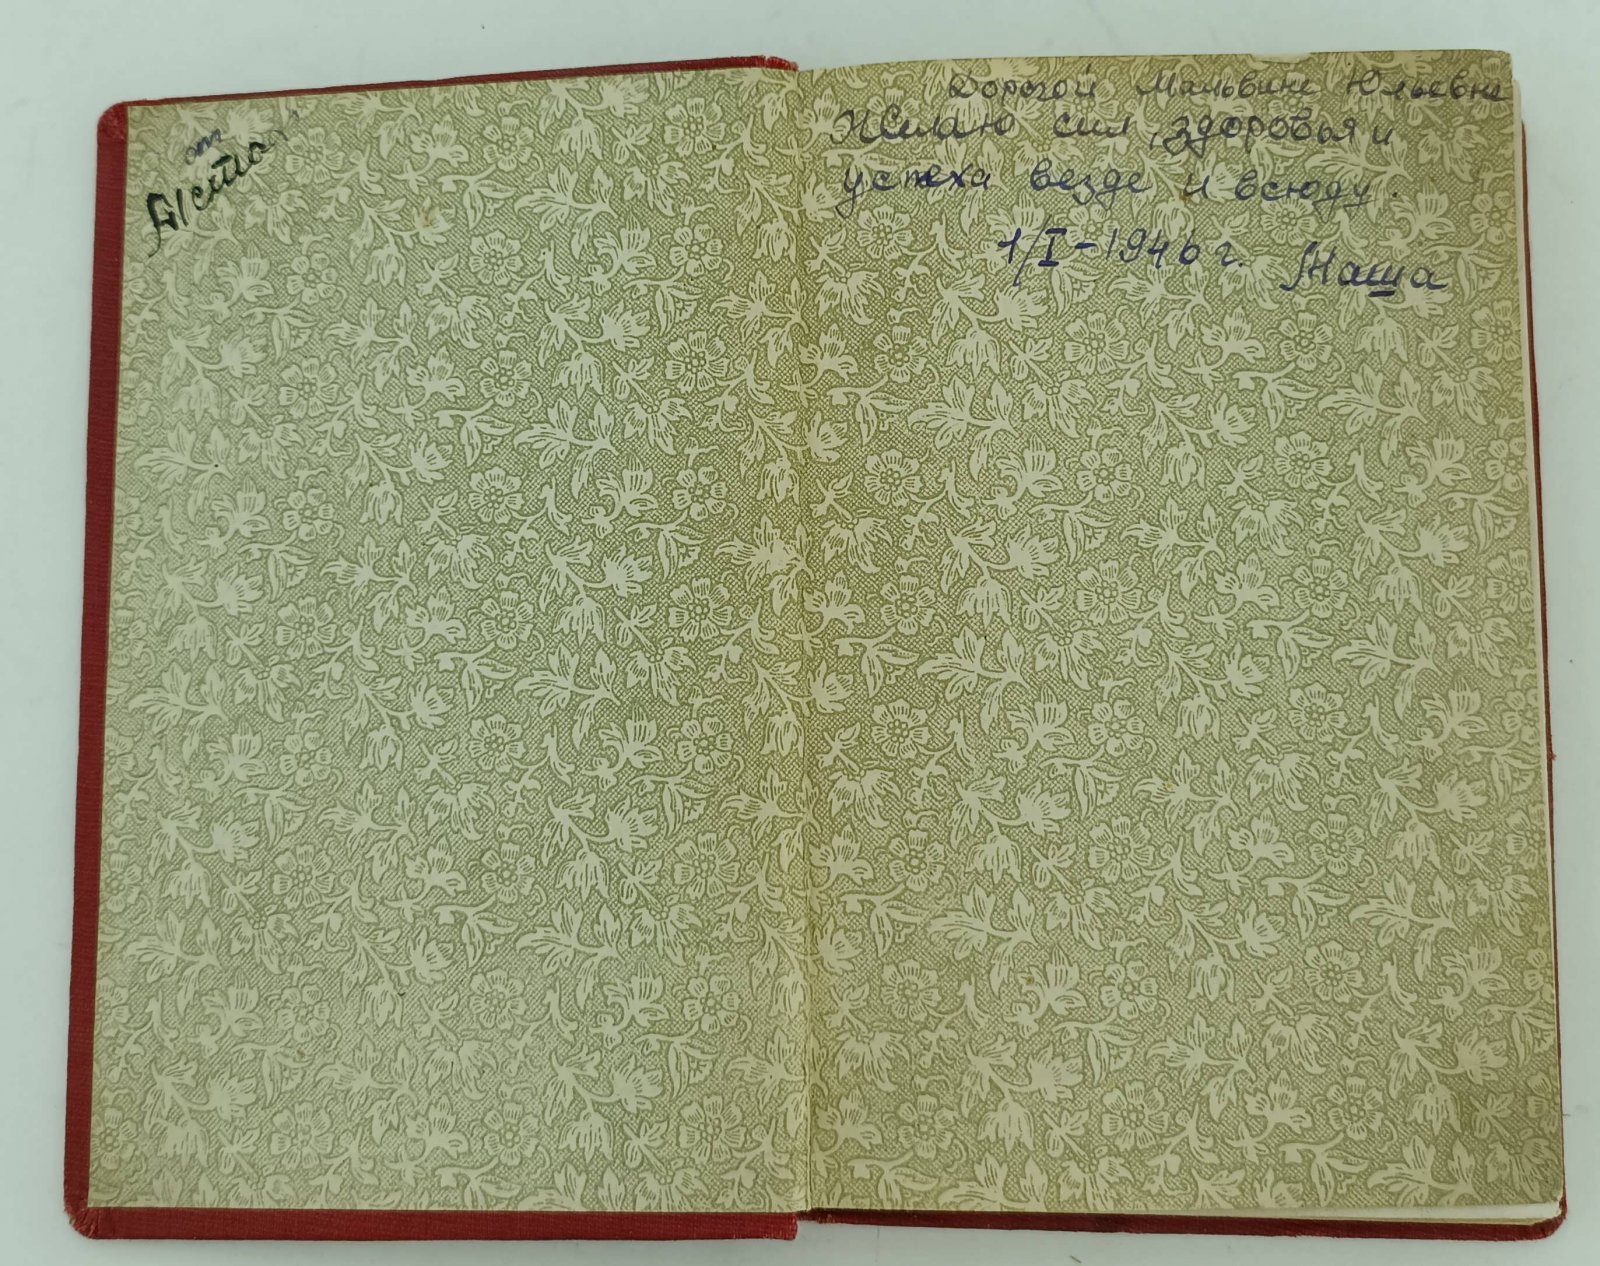 от
Дорогой Мальвине Юльевне
Желаю сил, здоровья и
успеха везде и всюду.
1/I-1946 г. Маша